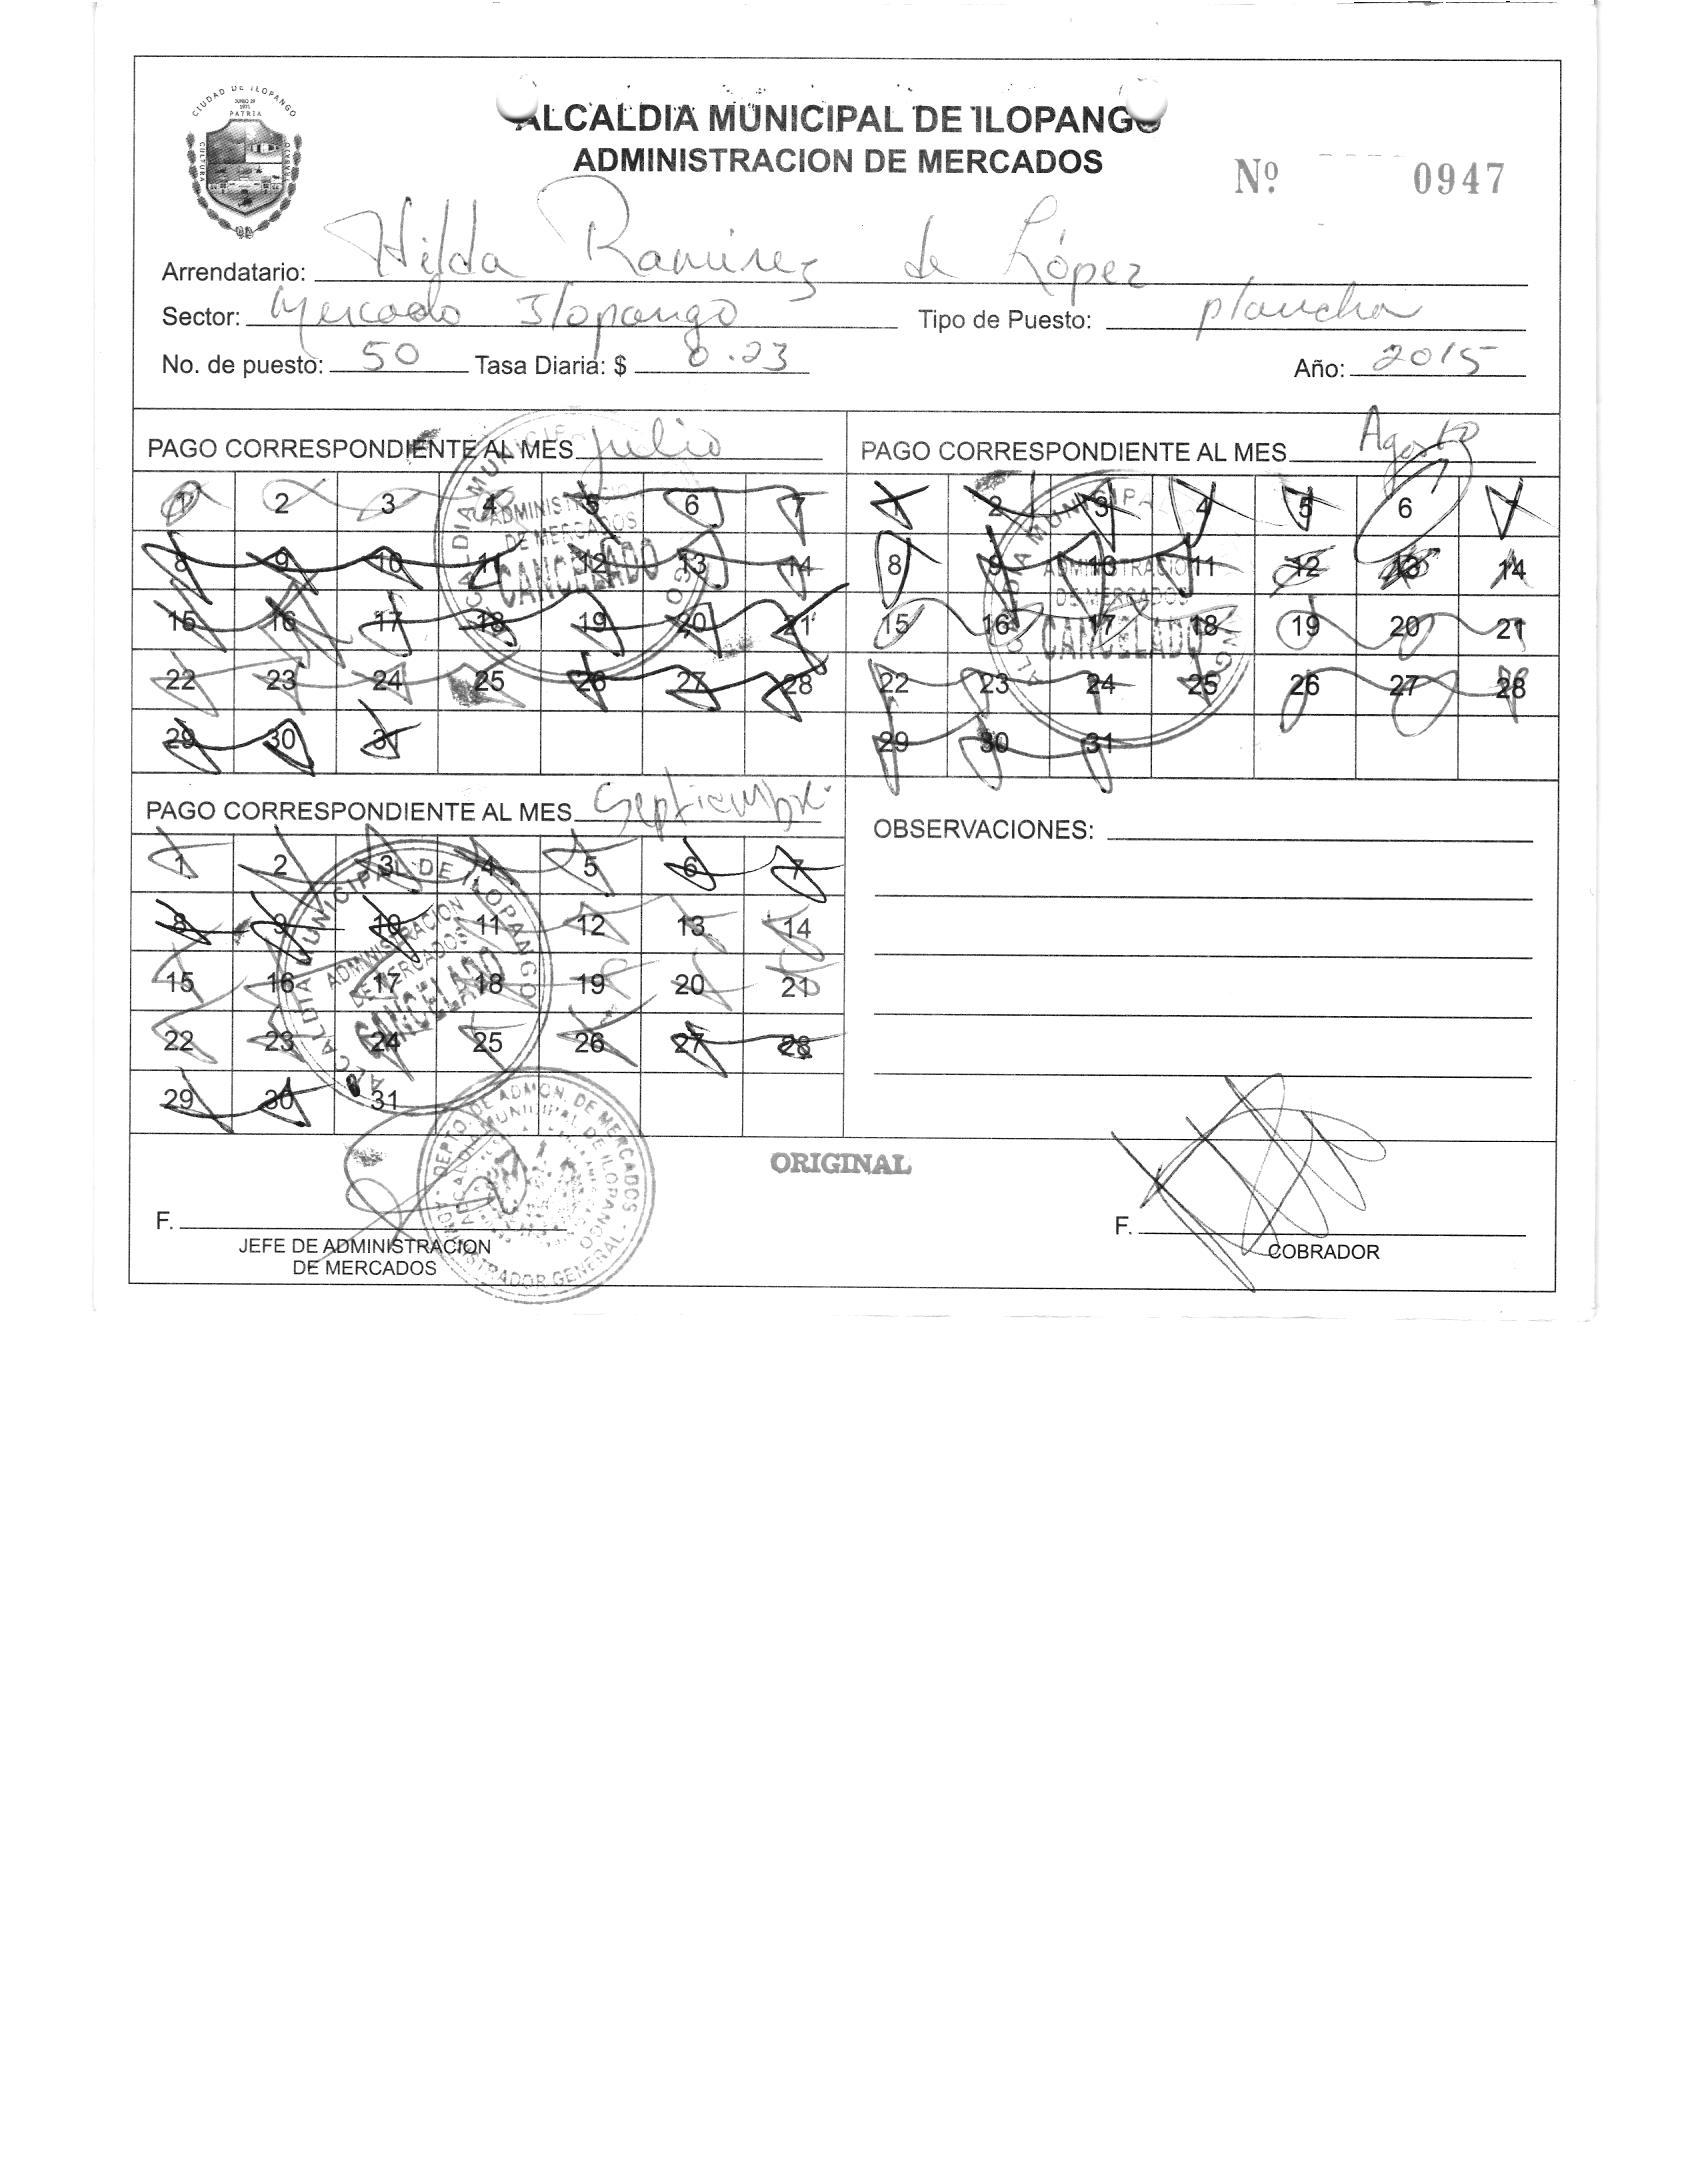 CIUDAD DE ILOPANGO
PATRIA
CULTURA
ALCALDIA MUNICIPAL DE ILOPANGO
ADMINISTRACION DE MERCADOS
Nº 0947
Arrendatario: Hilda Ramirez de López
Sector: Mercado Ilopango Tipo de Puesto: plancha
No. de puesto: 50 Tasa Diaria: $ 0.23 Año: 2015
PAGO CORRESPONDIENTE AL MES Julio
1 2 3 4 5 6 7
8 9 10 11 12 13 14
15 16 17 18 19 20 21
22 23 24 25 26 27 28
29 30 31
ADMINISTRACION
DE MERCADOS
CANCELADO
PAGO CORRESPONDIENTE AL MES Agosto
1 2 3 4 5 6 7
8 9 10 11 12 13 14
15 16 17 18 19 20 21
22 23 24 25 26 27 28
29 30 31
ADMINISTRACION
DE MERCADOS
CANCELADO
PAGO CORRESPONDIENTE AL MES Septiembre
1 2 3 4 5 6 7
8 9 10 11 12 13 14
15 16 17 18 19 20 21
22 23 24 25 26 27 28
29 30 31
ALCALDIA MUNICIPAL DE ILOPANGO
ADMINISTRACION
DE MERCADOS
CANCELADO
OBSERVACIONES:
ORIGINAL
DEPTO. DE ADMON. DE MERCADOS
ALCALDIA MUNICIPAL DE ILOPANGO
ADMINISTRADOR GENERAL
F.
JEFE DE ADMINISTRACION
DE MERCADOS
F.
COBRADOR